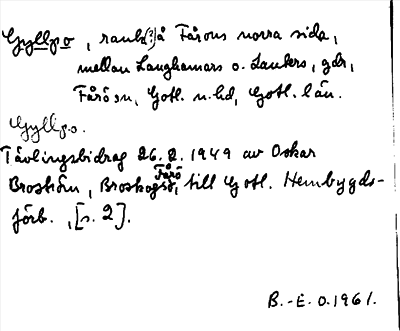 Gyllpo, rauk(?) å Fårons norra sida,
mellan Langhamars o. Lauters, gdr,
Fårö sn, Gotl. n. hd, Gotl. län.
Gyllpo.
Tävlingsbidrag 26.2.1949 av Oskar
Broström, Broskogs, Fårö, till Gotl. Hembygds-
förb., [s. 2].
B.-E. O. 1961.